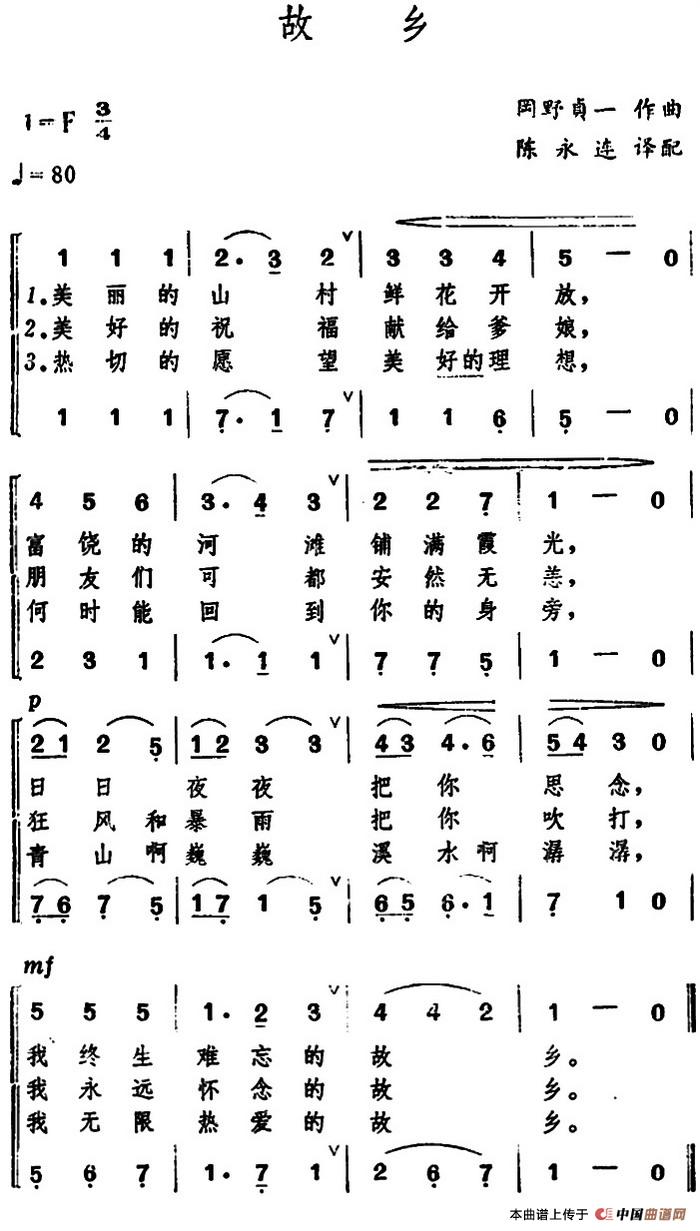 故 乡
1=F 3/4
岡野貞一 作曲
陈永连 译配
♩=80
1 1 1 | 2. 3 2 ∨ | 3 3 4 | 5 — 0 |
1.美丽的山村鲜花开放，
2.美好的祝福献给爹娘，
3.热切的愿望美好的理想，
1 1 1 | 7. 1 7 ∨ | 1 1 6 | 5 — 0 |
4 5 6 | 3. 4 3 ∨ | 2 2 7 | 1 — 0 |
富饶的河滩铺满霞光，
朋友们可都安然无恙，
何时能回到你的身旁，
2 3 1 | 1. 1 1 ∨ | 7 7 5 | 1 — 0 |
p
21 2 5 | 12 3 3 ∨ | 43 4. 6 | 54 3 0 |
日日夜夜把你思念，
狂风和暴雨把你吹打，
青山啊巍巍溪水啊潺潺，
76 7 5 | 17 1 5 ∨ | 65 6. 1 | 7 1 0 |
mf
5 5 5 | 1. 2 3 ∨ | 4 4 2 | 1 — 0 ‖
我终生难忘的故乡。
我永远怀念的故乡。
我无限热爱的故乡。
5 6 7 | 1. 7 1 ∨ | 2 6 7 | 1 — 0 ‖
本曲谱上传于 中国曲谱网